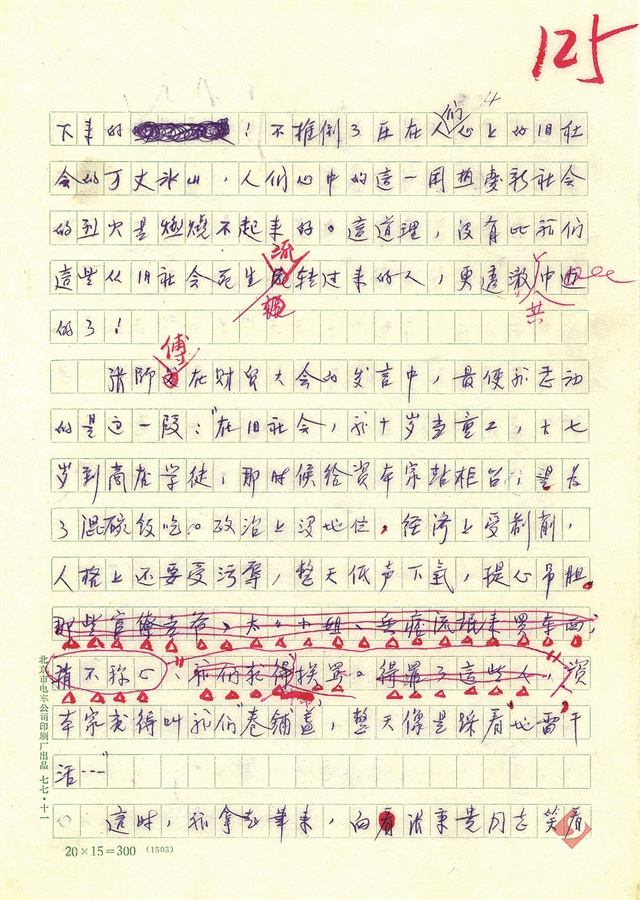 125
下来的！不推倒了压在人们心上的旧社
会的万丈冰山，人们心中的這一团热爱新社会
的烈火是燃燒不起来的。這道理，没有比我们
這些从旧社会死生流转过来的人，更透澈
共
的了！
張師傅在财贸大会的发言中，最使我感动
的是这一段："在旧社会，我十岁当童工，十七
岁到商店学徒，那时候给資本家站柜台，是为
了混碗饭吃。政治上没地位，经济上受剥削，
人格上还要受污辱，整天低声下氣，提心吊胆。
那些官僚老爷、太太小姐、兵痞流氓来買东西，
稍不称心，我们就得挨罵。得罪了這些人，資
本家就得叫我们"卷铺盖"，整天像是踩着地雷干
活……"
這时，我拿起筆来，向張秉貴同志笑着
20×15=300 (1503)
北京市电车公司印刷厂出品 七七·十一